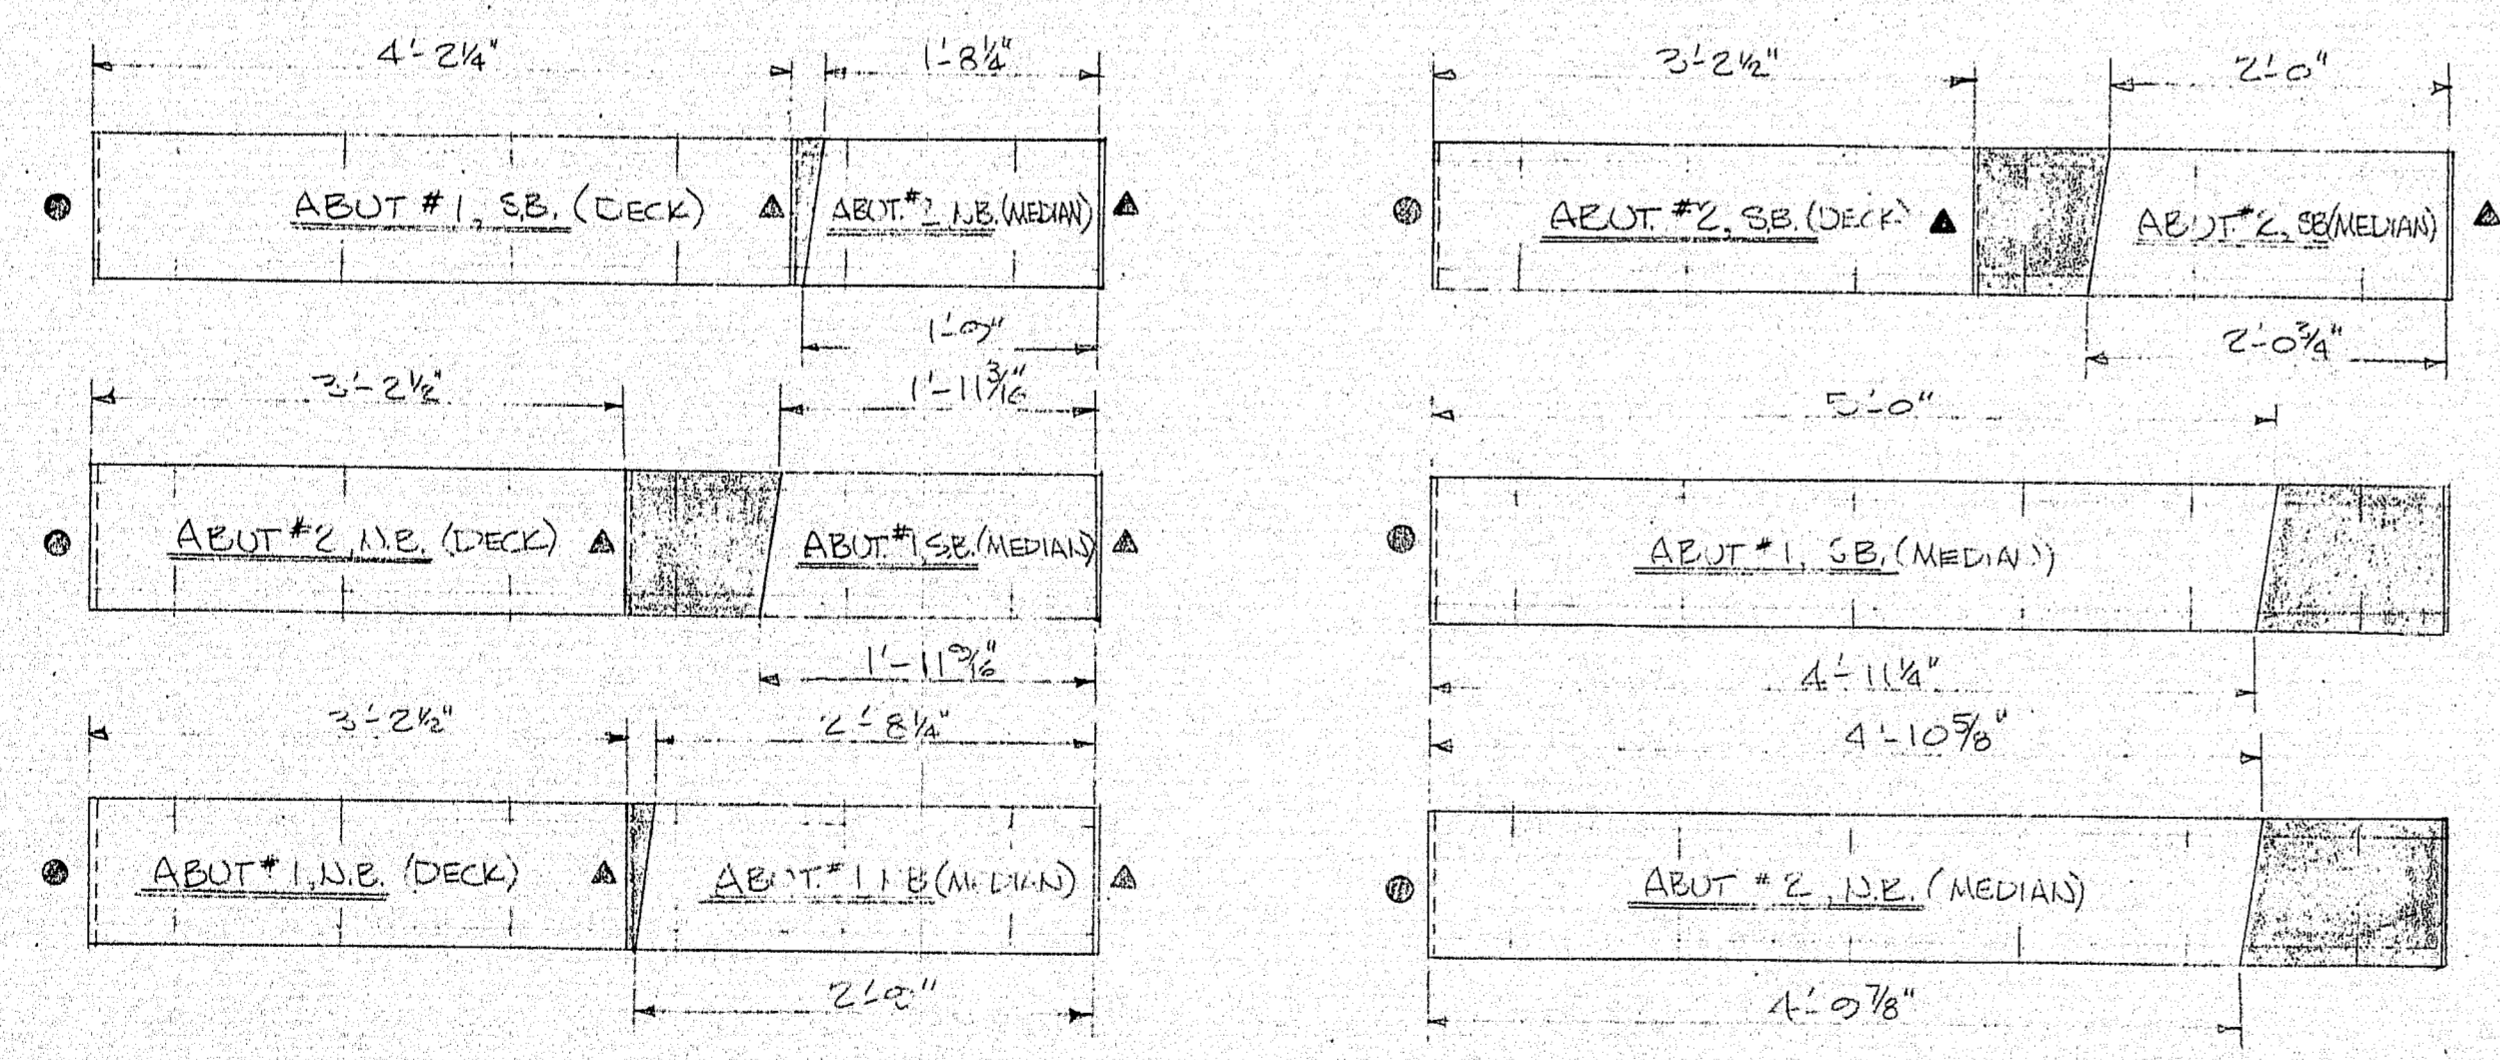 4'-2¼" 1'-8¼"
ABUT #1, S.B. (DECK) ABUT. #2 N.B. (MEDIAN)
1'-9"
3'-2½" 1'-11 3/16"
ABUT #2, N.B. (DECK) ABUT. #1, S.B. (MEDIAN)
1'-11 9/16"
3'-2½" 2'-8¼"
ABUT #1, N.B. (DECK) ABUT. #1 N B (MEDIAN)
2'-9"
3'-2½" 2'-0"
ABUT. #2, S.B. (DECK) ABUT. #2, SB (MEDIAN)
2'-0¾"
5'-0"
ABUT #1, S.B. (MEDIAN)
4'-11¼"
4'-10⅝"
ABUT #2, N.B. (MEDIAN)
4'-9⅞"